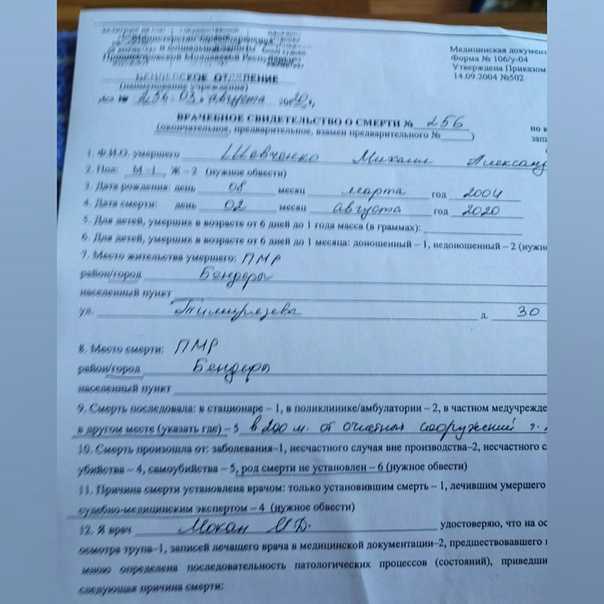 Министерство здравоохранения
и социальной защиты
Приднестровской Молдавской Республики
БЕНДЕРСКОЕ ОТДЕЛЕНИЕ
(наименование учреждения)
Медицинская документ
Форма № 106/у-04
Утверждена Приказом
14.09.2004 №502
256 03. августа 2020г.
ВРАЧЕБНОЕ СВИДЕТЕЛЬСТВО О СМЕРТИ № 256
(окончательное, предварительное, взамен предварительного № )
1. Ф.И.О. умершего Шевченко Михаил Александ
2. Пол: М -1, Ж – 2 (нужное обвести)
3. Дата рождения: день 08 месяц марта год 2004
4. Дата смерти: день 02 месяц августа год 2020
5. Для детей, умерших в возрасте от 6 дней до 1 года масса (в граммах):
6. Для детей, умерших в возрасте от 6 дней до 1 месяца: доношенный – 1, недоношенный – 2 (нужн
7. Место жительства умершего: ПМР
район/город Бендеры
населенный пункт
ул. Тимирязева д. 30
8. Место смерти: ПМР
район/город Бендеры
населенный пункт
9. Смерть последовала: в стационаре – 1, в поликлинике/амбулатории – 2, в частном медучрежде
в другом месте (указать где) – 5 в 200 м. от очистных сооружений г.
10. Смерть произошла от: заболевания–1, несчастного случая вне производства–2, несчастного с
убийства – 4, самоубийства – 5, род смерти не установлен – 6 (нужное обвести)
11. Причина смерти установлена врачом: только установившим смерть – 1, лечившим умершего
судебно-медицинским экспертом – 4 (нужное обвести)
12. Я врач Мокан удостоверяю, что на ос
осмотра трупа–1, записей лечащего врача в медицинской документации–2, предшествовавшего
мною определена последовательность патологических процессов (состояний), приведши
следующая причина смерти: